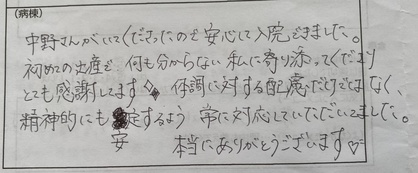 (病棟)
中野さんがいてくださったので安心して入院できました。
初めての出産で、何も分からない私に寄り添ってくださり
とても感謝してます 体調に対する配慮だけではなく、
精神的にも安定するよう 常に対応していただいてました。
本当にありがとうございます♡